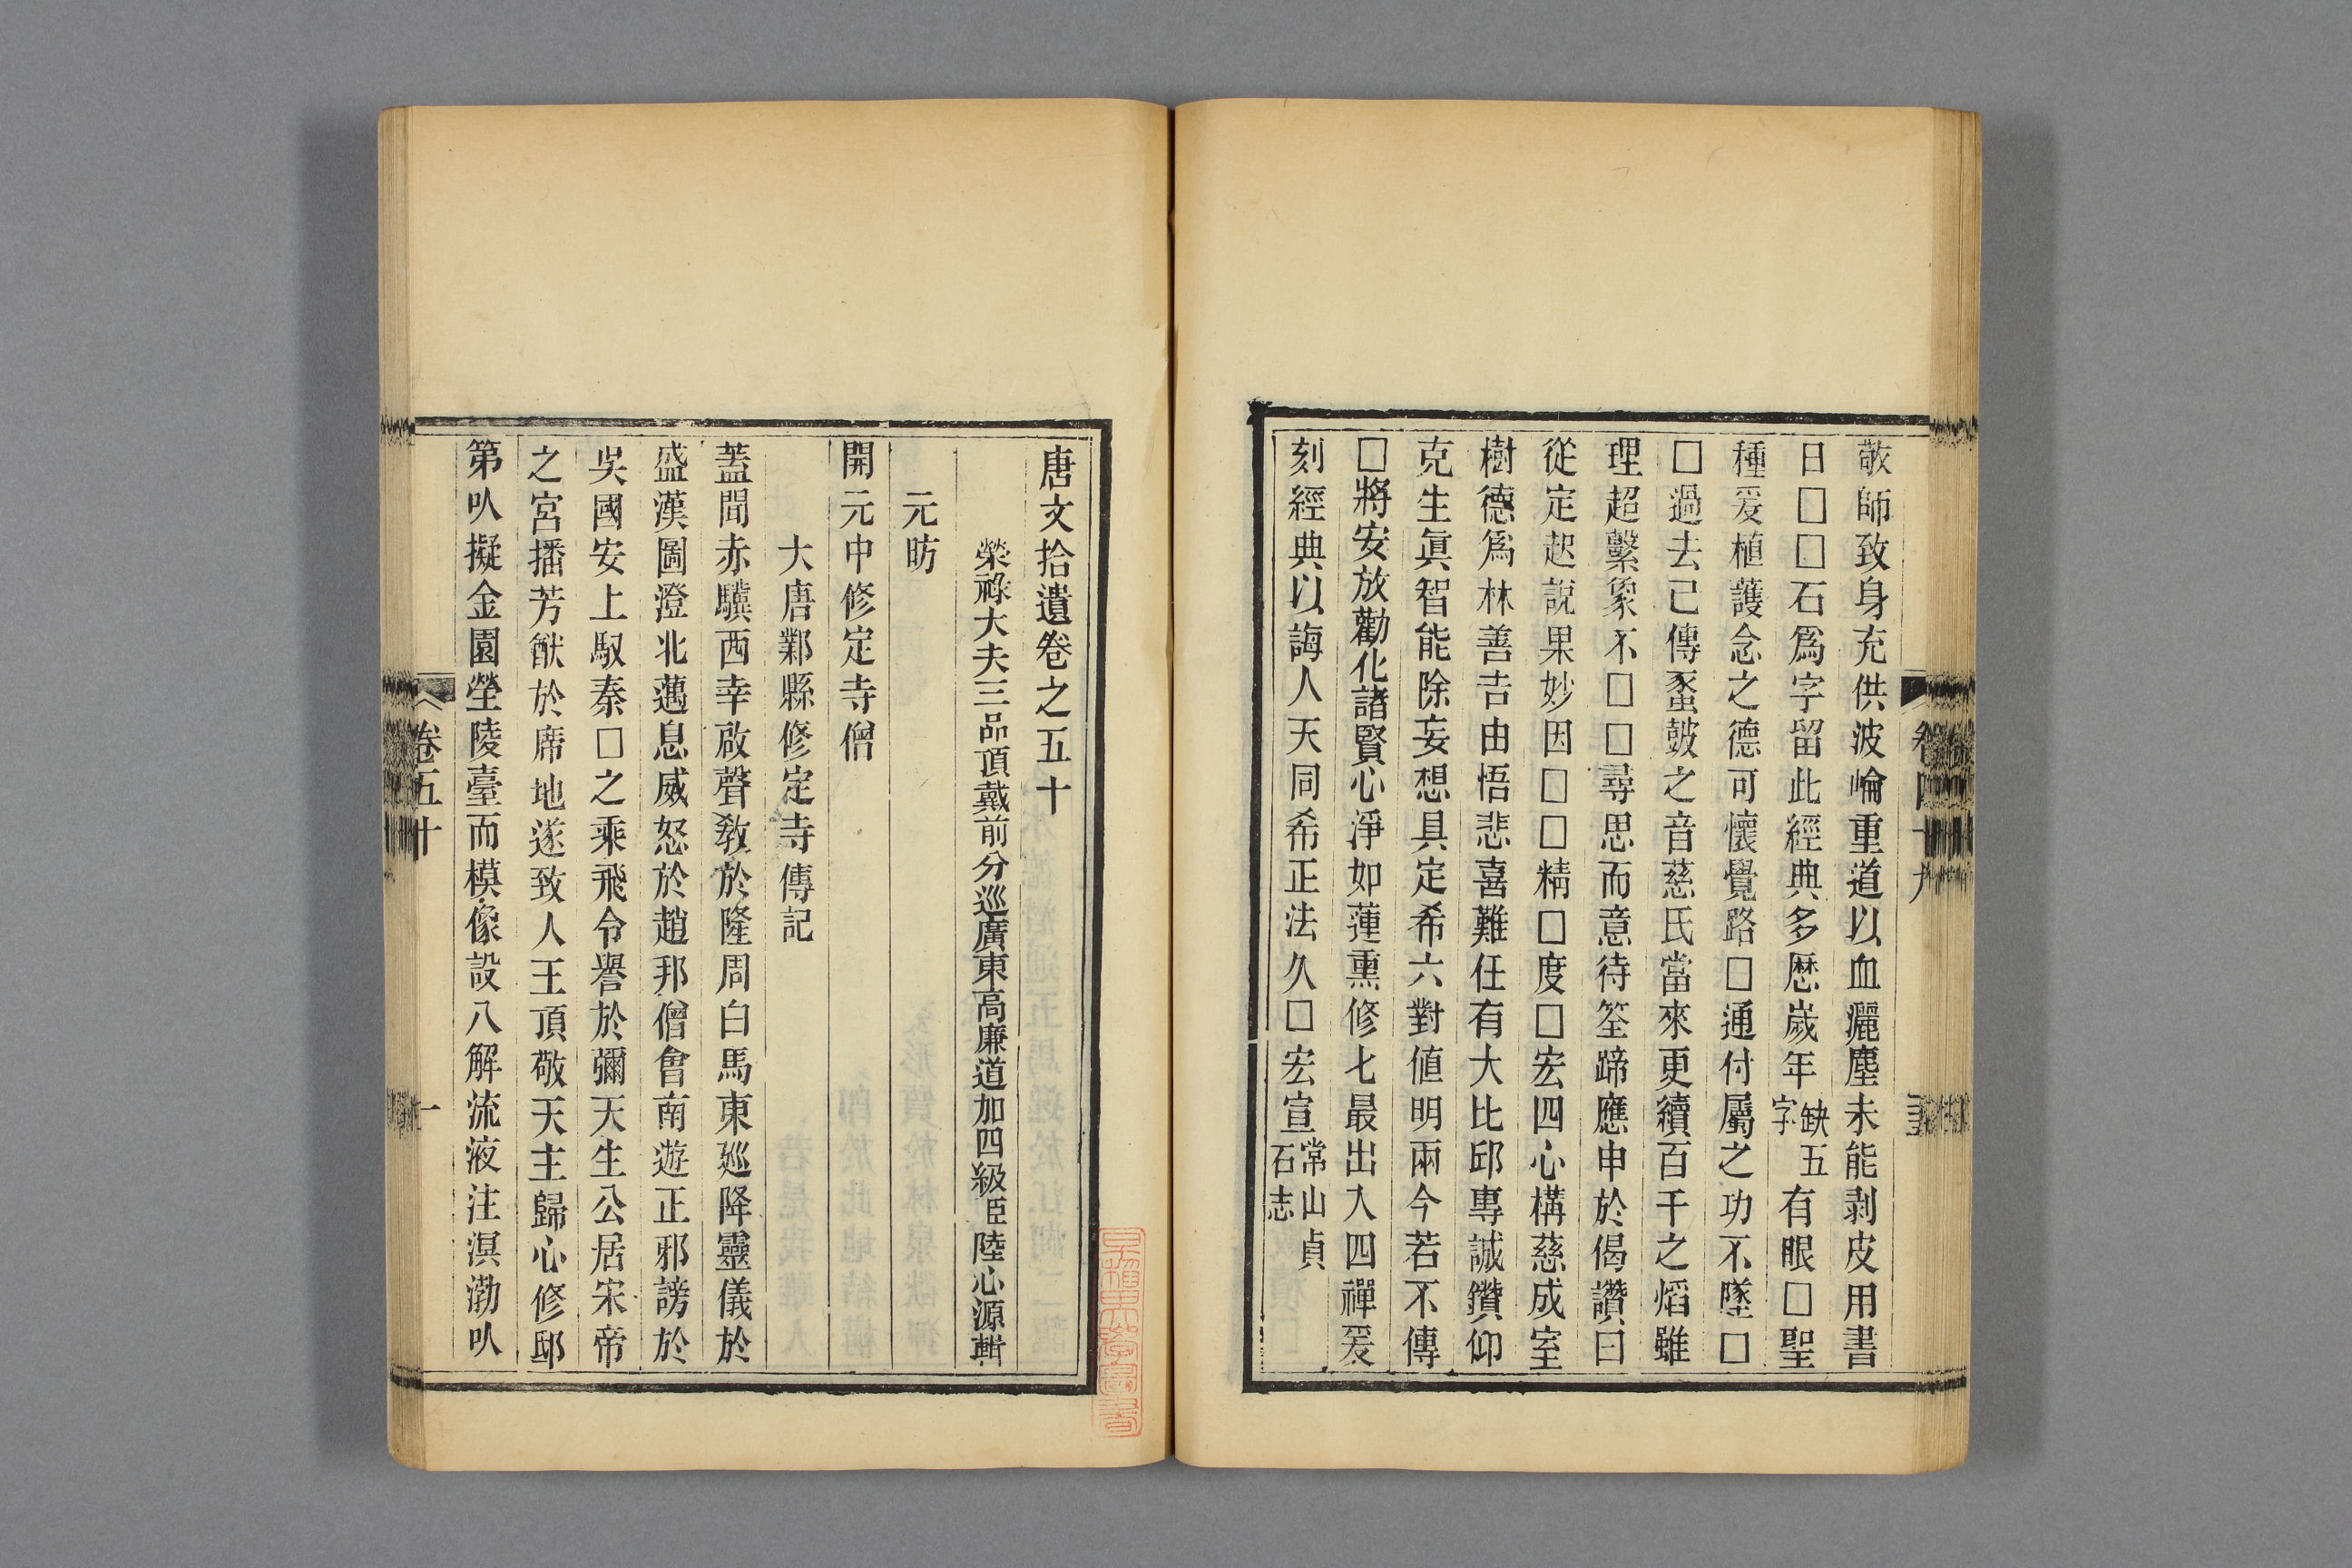 敬師致身充供波崘重道以血灑塵未能剥皮用書
日□□石爲字留此經典多歷歲年缺五字有眼□聖
種爰植護念之德可懷覺路□通付屬之功不墜□
□過去已傳蠡皷之音慈氏當來更續百千之焰雖
理超繫象不□□尋思而意待筌蹄應申於偈讚曰
從定起說果妙因□□精□度□宏四心構慈成室
樹德爲林善吉由悟悲喜難任有大比邱專誠鑽仰
克生眞智能除妄想具定希六對値明兩今若不傳
□將安放勸化諸賢心淨如蓮熏修七最出入四禪爰
刻經典以誨人天同希正法久□宏宣常山貞石志
卷四十九
唐文拾遺卷之五十
榮祿大夫三品頂戴前分巡廣東高廉道加四級臣陸心源輯
元昉
開元中修定寺僧
大唐鄴縣修定寺傳記
蓋聞赤驥西幸啟聲敎於隆周白馬東廵降靈儀於
盛漢圖澄北邁息威怒於趙邦僧會南遊正邪謗於
吳國安上馭秦□之乘飛令譽於彌天生公居宋帝
之宮播芳猷於席地遂致人王頂敬天主歸心修邸
第㕥擬金園塋陵臺而模像設八解流液注溟渤㕥
卷五十
一